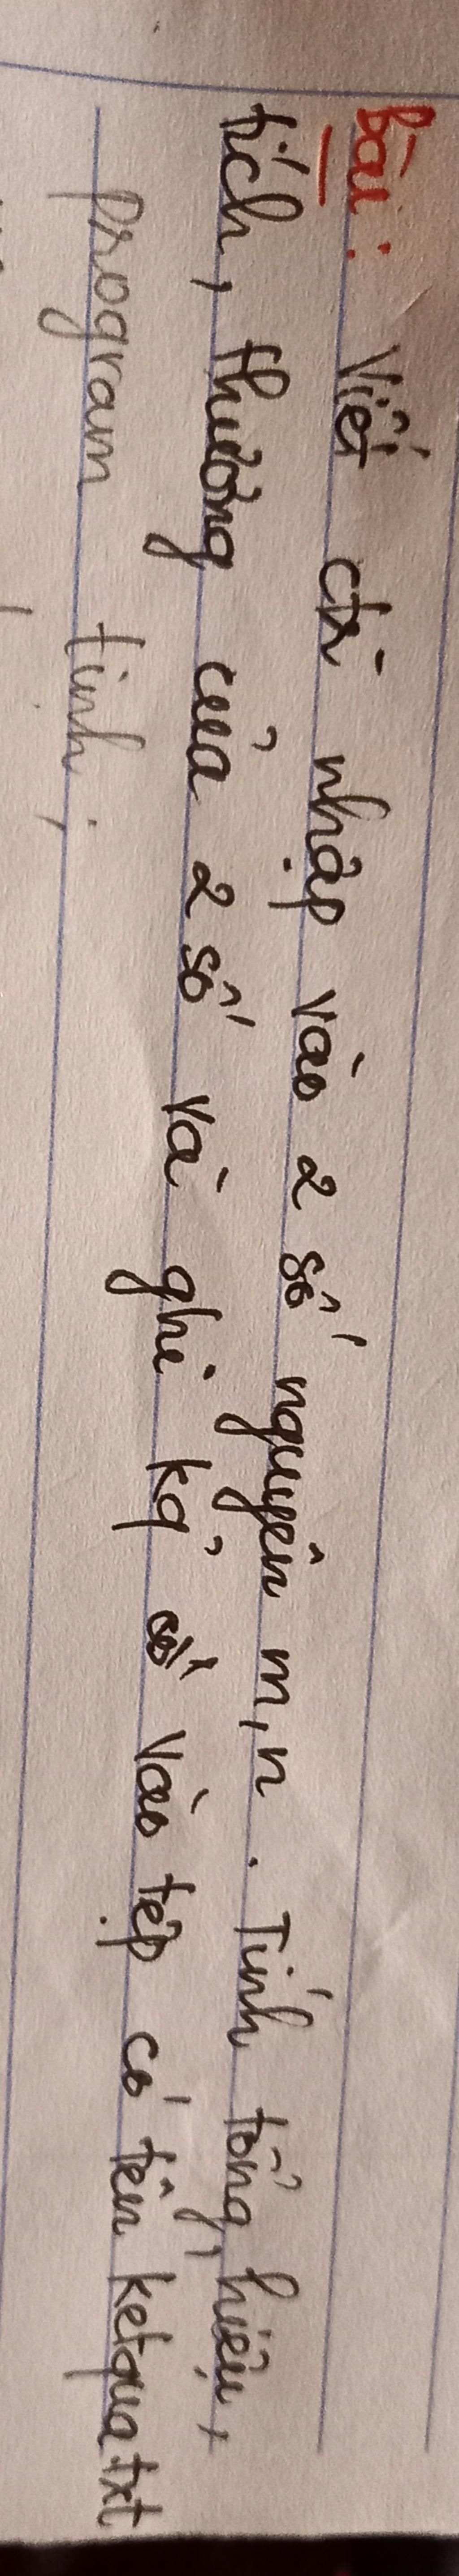 Bài: Viết ctr nhập vào 2 số nguyên m,n. Tính tổng, hiệu,
tích, thương của 2 số và ghi kq vào tệp có tên ketqua.txt
program tinh;